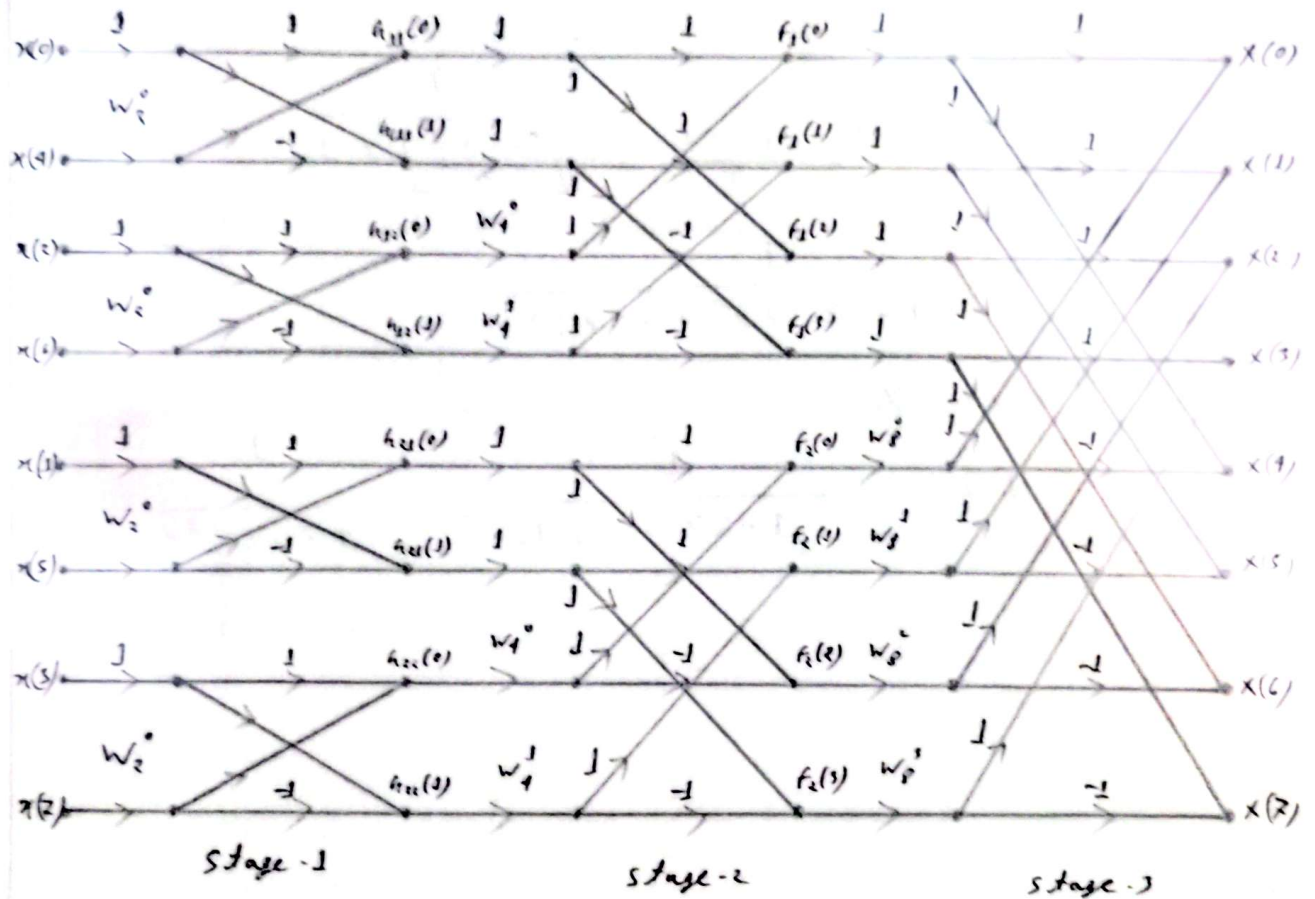 1 1 h11(0) 1 1 F1(0) 1 1
x(0) X(0)
W2^0 1
-1 h11(1) 1 1 F1(1) 1 1
x(4) X(1)
1 1 h12(0) W4^0 1 1 -1 F1(2) 1 1 1
x(2) X(2)
W2^0 1
-1 h12(1) W4^1 1 -1 F1(3) 1 1
x(6) X(3)
1
1 1 h21(0) 1 1 F2(0) W8^0 1 -1
x(1) X(4)
W2^0 1
-1 h21(1) 1 1 F2(1) W8^1 1 -1
x(5) X(5)
1
1 1 h22(0) W4^0 1 -1 F2(2) W8^2 1 -1
x(3) X(6)
W2^0
-1 h22(1) W4^1 1 -1 F2(3) W8^3 1 -1
x(7) X(7)
stage-1 stage-2 stage-3